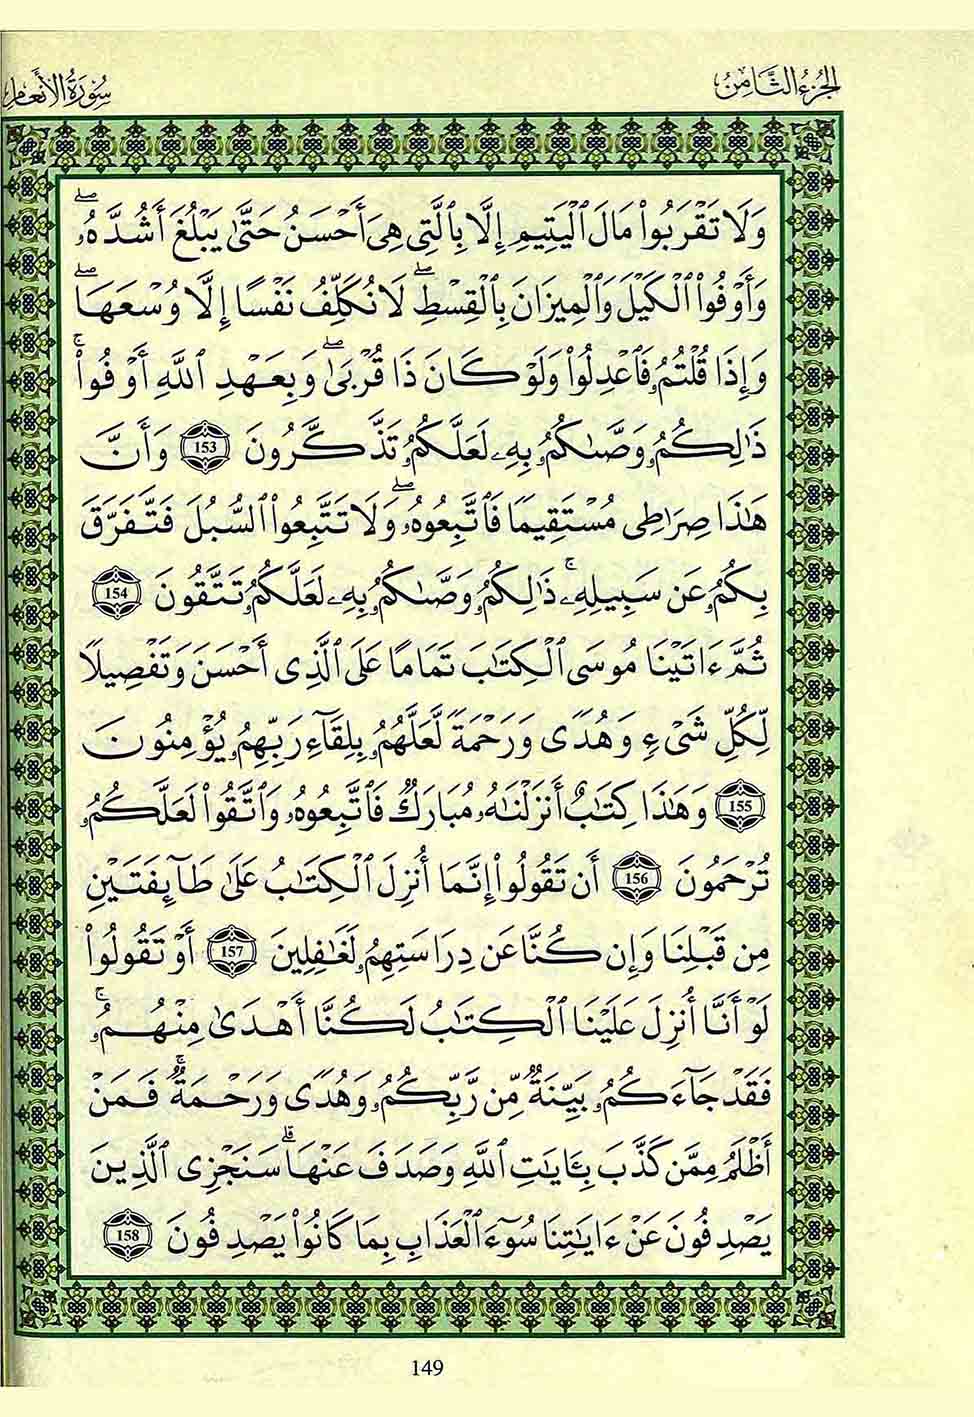 الجزء الثامن
سورة الأنعام
وَلَا تَقْرَبُواْ مَالَ اَلْيَتِيمِ إِلَّا بِالَّتِى هِىَ أَحْسَنُ حَتَّىٰ يَبْلُغَ أَشُدَّهُۥۖ
وَأَوْفُواْ اُلْكَيْلَ وَالْمِيزَانَ بِالْقِسْطِۖ لَا نُكَلِّفُ نَفْسًا إِلَّا وُسْعَهَاۖ
وَإِذَا قُلْتُمُۥ فَاعْدِلُواْ وَلَوْ كَانَ ذَا قُرْبَىٰۖ وَبِعَهْدِ اِللَّهِ أَوْفُواْۚ
ذَٰلِكُمُۥ وَصَّىٰكُمُۥ بِهِۦ لَعَلَّكُمُۥ تَذَّكَّرُونَ 153 وَأَنَّ
هَٰذَا صِرَاطِى مُسْتَقِيمًا فَاتَّبِعُوهُۥۖ وَلَا تَتَّبِعُواْ اُلسُّبُلَ فَتَّفَرَّقَ
بِكُمُۥ عَن سَبِيلِهِۦۚ ذَٰلِكُمُۥ وَصَّىٰكُمُۥ بِهِۦ لَعَلَّكُمُۥ تَتَّقُونَ 154
ثُمَّ ءَاتَيْنَا مُوسَى اَلْكِتَٰبَ تَمَامًا عَلَى اَلَّذِى أَحْسَنَ وَتَفْصِيلًا
لِّكُلِّ شَىْءٍ وَهُدًى وَرَحْمَةً لَّعَلَّهُمُۥ بِلِقَآءِ رَبِّهِمُۥ يُؤْمِنُونَ
155 وَهَٰذَا كِتَٰبٌ أَنزَلْنَٰهُۥ مُبَارَكٌ فَاتَّبِعُوهُۥ وَاتَّقُواْ لَعَلَّكُمُۥ
تُرْحَمُونَ 156 أَن تَقُولُواْ إِنَّمَا أُنزِلَ اَلْكِتَٰبُ عَلَىٰ طَآئِفَتَيْنِ
مِن قَبْلِنَا وَإِن كُنَّا عَن دِرَاسَتِهِمُۥ لَغَٰفِلِينَ 157 أَوْ تَقُولُواْ
لَوْ أَنَّا أُنزِلَ عَلَيْنَا اَلْكِتَٰبُ لَكُنَّا أَهْدَىٰ مِنْهُمُۥۚ
فَقَدْ جَآءَكُمُۥ بَيِّنَةٌ مِّن رَّبِّكُمُۥ وَهُدًى وَرَحْمَةٌۚ فَمَنْ
أَظْلَمُ مِمَّن كَذَّبَ بِـَٔايَٰتِ اِللَّهِ وَصَدَفَ عَنْهَاۗ سَنَجْزِى اِلَّذِينَ
يَصْدِفُونَ عَنْ ءَايَٰتِنَا سُوٓءَ اَلْعَذَابِ بِمَا كَانُواْ يَصْدِفُونَ 158
149